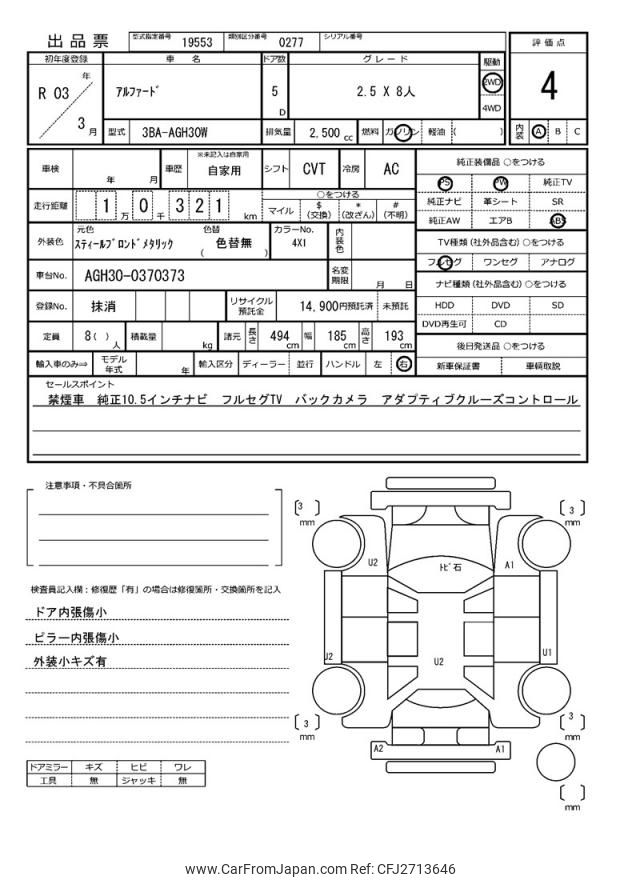 出品票 型式指定番号 19553 類別区分番号 0277 シリアル番号
評価点
4
初年度登録 車名 ドア数 グレード 駆動
R 03 年 3 月
アルファード 5 D 2.5 X 8人 2WD 4WD
型式 3BA-AGH30W 排気量 2,500 cc 燃料 ガソリン 軽油 ( )
内装 A B C
車検 年 月 車歴 ※未記入は自家用 自家用 シフト CVT 冷房 AC
走行距離 1 万 0 千 3 2 1 km
○をつける
マイル $(交換) *(改ざん) #(不明)
外装色 元色 スティールブロンドメタリック 色替 ( 色替無 ) カラーNo. 4X1 内装色
車台No. AGH30-0370373 名変期限 月 日
登録No. 抹消 リサイクル預託金 14,900円預託済 未預託
定員 8( ) 人 積載量 kg 諸元 長さ 494 cm 幅 185 cm 高さ 193 cm
輸入車のみ⇒ モデル年式 年 輸入区分 ディーラー 並行 ハンドル 左 右
純正装備品 ○をつける
PS PW 純正TV
純正ナビ 革シート SR
純正AW エアB ABS
TV種類(社外品含む) ○をつける
フルセグ ワンセグ アナログ
ナビ種類(社外品含む) ○をつける
HDD DVD SD
DVD再生可 CD
後日発送品 ○をつける
新車保証書 車輌取説
セールスポイント
禁煙車 純正10.5インチナビ フルセグTV バックカメラ アダプティブクルーズコントロール
注意事項・不具合箇所
検査員記入欄:修復歴「有」の場合は修復箇所・交換箇所を記入
ドア内張傷小
ピラー内張傷小
外装小キズ有
ドアミラー キズ ヒビ ワレ
工具 無 ジャッキ 無
[3] mm
[3] mm
U2
トビ石
A1
J2
U2
U1
[3] mm
[3] mm
A2
A1
[ ] mm
www.CarFromJapan.com Ref: CFJ2713646